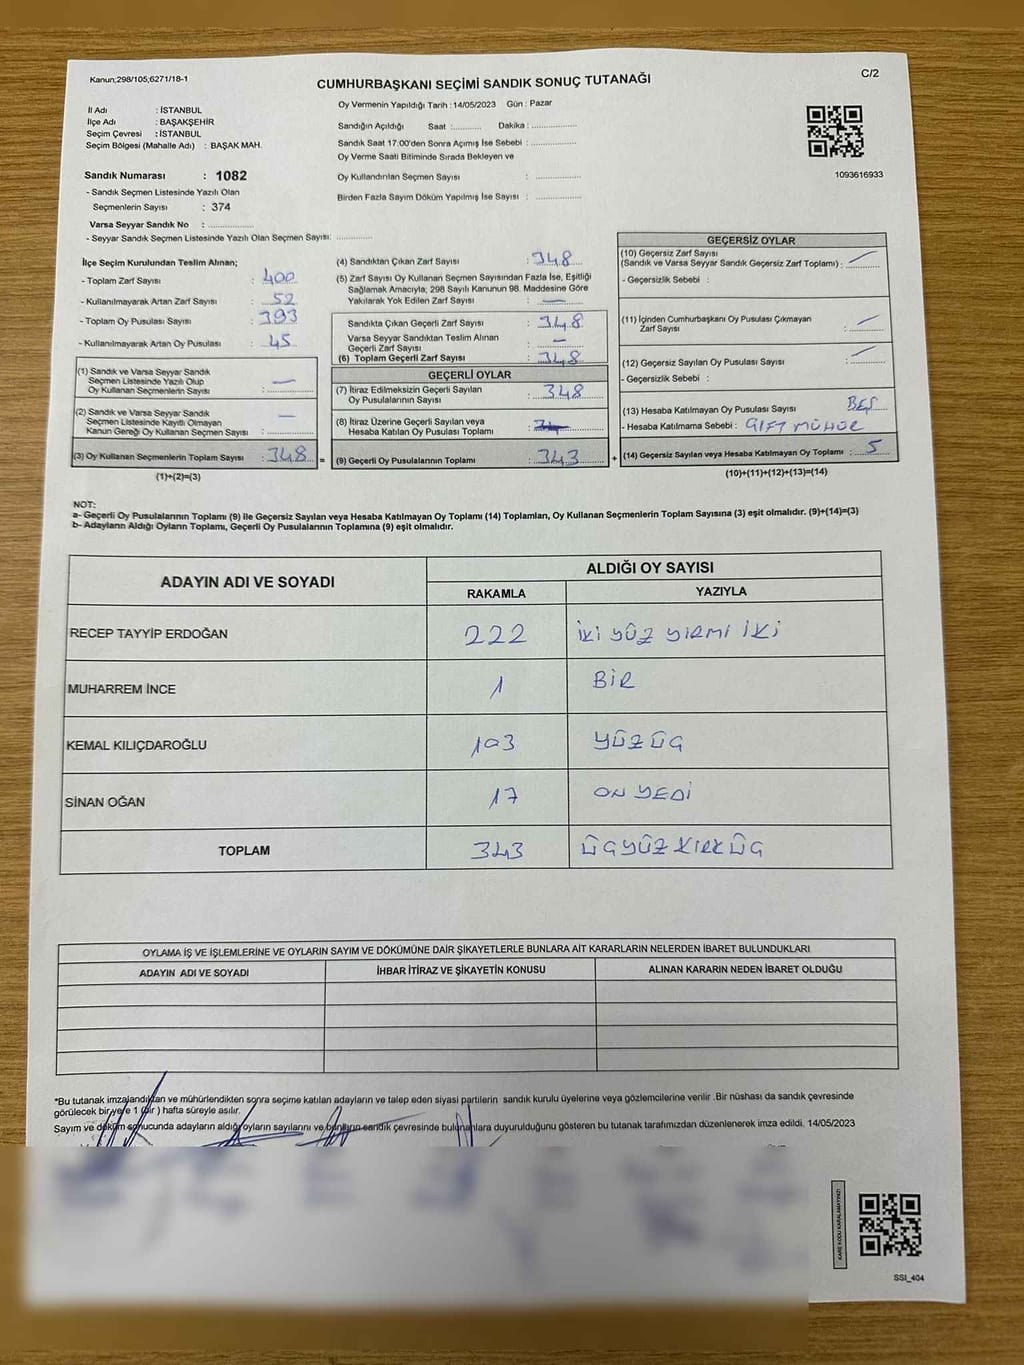 Kanun;298/105,6271/18-1
CUMHURBAŞKANI SEÇİMİ SANDIK SONUÇ TUTANAĞI
C/2
İl Adı : İSTANBUL
İlçe Adı : BAŞAKŞEHİR
Seçim Çevresi : İSTANBUL
Seçim Bölgesi (Mahalle Adı) : BAŞAK MAH.
Oy Vermenin Yapıldığı Tarih : 14/05/2023 Gün : Pazar
Sandığın Açıldığı Saat :........... Dakika :.................
Sandık Saat 17.00'den Sonra Açımış İse Sebebi :.................
Oy Verme Saati Bitiminde Sırada Bekleyen ve
Oy Kullandırılan Seçmen Sayısı :.................
Birden Fazla Sayım Döküm Yapılmış İse Sayısı :.................
1093616933
Sandık Numarası : 1082
- Sandık Seçmen Listesinde Yazılı Olan
Seçmenlerin Sayısı : 374
Varsa Seyyar Sandık No :.................
- Seyyar Sandık Seçmen Listesinde Yazılı Olan Seçmen Sayısı:.............
İlçe Seçim Kurulundan Teslim Alınan;
- Toplam Zarf Sayısı : 400
- Kullanılmayarak Artan Zarf Sayısı : 52
- Toplam Oy Pusulası Sayısı : 393
- Kullanılmayarak Artan Oy Pusulası : 45
(1) Sandık ve Varsa Seyyar Sandık
Seçmen Listesinde Yazılı Olup
Oy Kullanan Seçmenlerin Sayısı : —
(2) Sandık ve Varsa Seyyar Sandık
Seçmen Listesinde Kayıtlı Olmayan
Kanun Gereği Oy Kullanan Seçmen Sayısı : —
(3) Oy Kullanan Seçmenlerin Toplam Sayısı : 348 =
(1)+(2)=(3)
(4) Sandıktan Çıkan Zarf Sayısı : 348
(5) Zarf Sayısı Oy Kullanan Seçmen Sayısından Fazla İse, Eşitliği
Sağlamak Amacıyla; 298 Sayılı Kanunun 98. Maddesine Göre
Yakılarak Yok Edilen Zarf Sayısı : —
Sandıkta Çıkan Geçerli Zarf Sayısı : 348
Varsa Seyyar Sandıktan Teslim Alınan
Geçerli Zarf Sayısı : —
(6) Toplam Geçerli Zarf Sayısı : 348
GEÇERLİ OYLAR
(7) İtiraz Edilmeksizin Geçerli Sayılan
Oy Pusulalarının Sayısı : 348
(8) İtiraz Üzerine Geçerli Sayılan veya
Hesaba Katılan Oy Pusulası Toplamı :
(9) Geçerli Oy Pusulalarının Toplamı : 343 +
GEÇERSİZ OYLAR
(10) Geçersiz Zarf Sayısı
(Sandık ve Varsa Seyyar Sandık Geçersiz Zarf Toplamı) : —
- Geçersizlik Sebebi :
(11) İçinden Cumhurbaşkanı Oy Pusulası Çıkmayan
Zarf Sayısı : —
(12) Geçersiz Sayılan Oy Pusulası Sayısı : —
- Geçersizlik Sebebi :
(13) Hesaba Katılmayan Oy Pusulası Sayısı BEŞ
- Hesaba Katılmama Sebebi : ÇİFT MÜHÜR
(14) Geçersiz Sayılan veya Hesaba Katılmayan Oy Toplamı : 5
(10)+(11)+(12)+(13)=(14)
NOT:
a- Geçerli Oy Pusulalarının Toplamı (9) ile Geçersiz Sayılan veya Hesaba Katılmayan Oy Toplamı (14) Toplamları, Oy Kullanan Seçmenlerin Toplam Sayısına (3) eşit olmalıdır. (9)+(14)=(3)
b- Adayların Aldığı Oyların Toplamı, Geçerli Oy Pusulalarının Toplamına (9) eşit olmalıdır.
ADAYIN ADI VE SOYADI
ALDIĞI OY SAYISI
RAKAMLA YAZIYLA
RECEP TAYYİP ERDOĞAN 222 İKİ YÜZ YİRMİ İKİ
MUHARREM İNCE 1 BİR
KEMAL KILIÇDAROĞLU 103 YÜZ ÜÇ
SİNAN OĞAN 17 ON YEDİ
TOPLAM 343 ÜÇ YÜZ KIRK ÜÇ
OYLAMA İŞ VE İŞLEMLERİNE VE OYLARIN SAYIM VE DÖKÜMÜNE DAİR ŞİKAYETLERLE BUNLARA AİT KARARLARIN NELERDEN İBARET BULUNDUKLARI
ADAYIN ADI VE SOYADI İHBAR İTİRAZ VE ŞİKAYETİN KONUSU ALINAN KARARIN NEDEN İBARET OLDUĞU
*Bu tutanak imzalandıktan ve mühürlendikten sonra seçime katılan adayların ve talep eden siyasi partilerin sandık kurulu üyelerine veya gözlemcilerine verilir .Bir nüshası da sandık çevresinde
görülecek bir yere 1 (bir ) hafta süreyle asılır.
Sayım ve döküm sonucunda adayların aldığı oyların sayılarını ve bunların sandık çevresinde bulunanlara duyurulduğunu gösteren bu tutanak tarafımızdan düzenlenerek imza edildi. 14/05/2023
KARE KODU KARALAMAYINIZ!
SSI_404